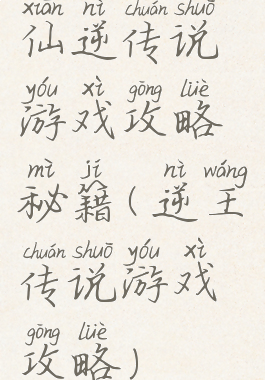 xiān nì chuán shuō
仙逆传说
yóu xì gōng lüè
游戏攻略
mì jí nì wáng
秘籍(逆王
chuán shuō yóu xì
传说游戏
gōng lüè
攻略)